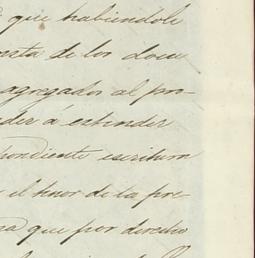 que habiendole
de los docu
agregados al pro-
á estender
pondiente escritura
el tenor de la pre
que por derecho